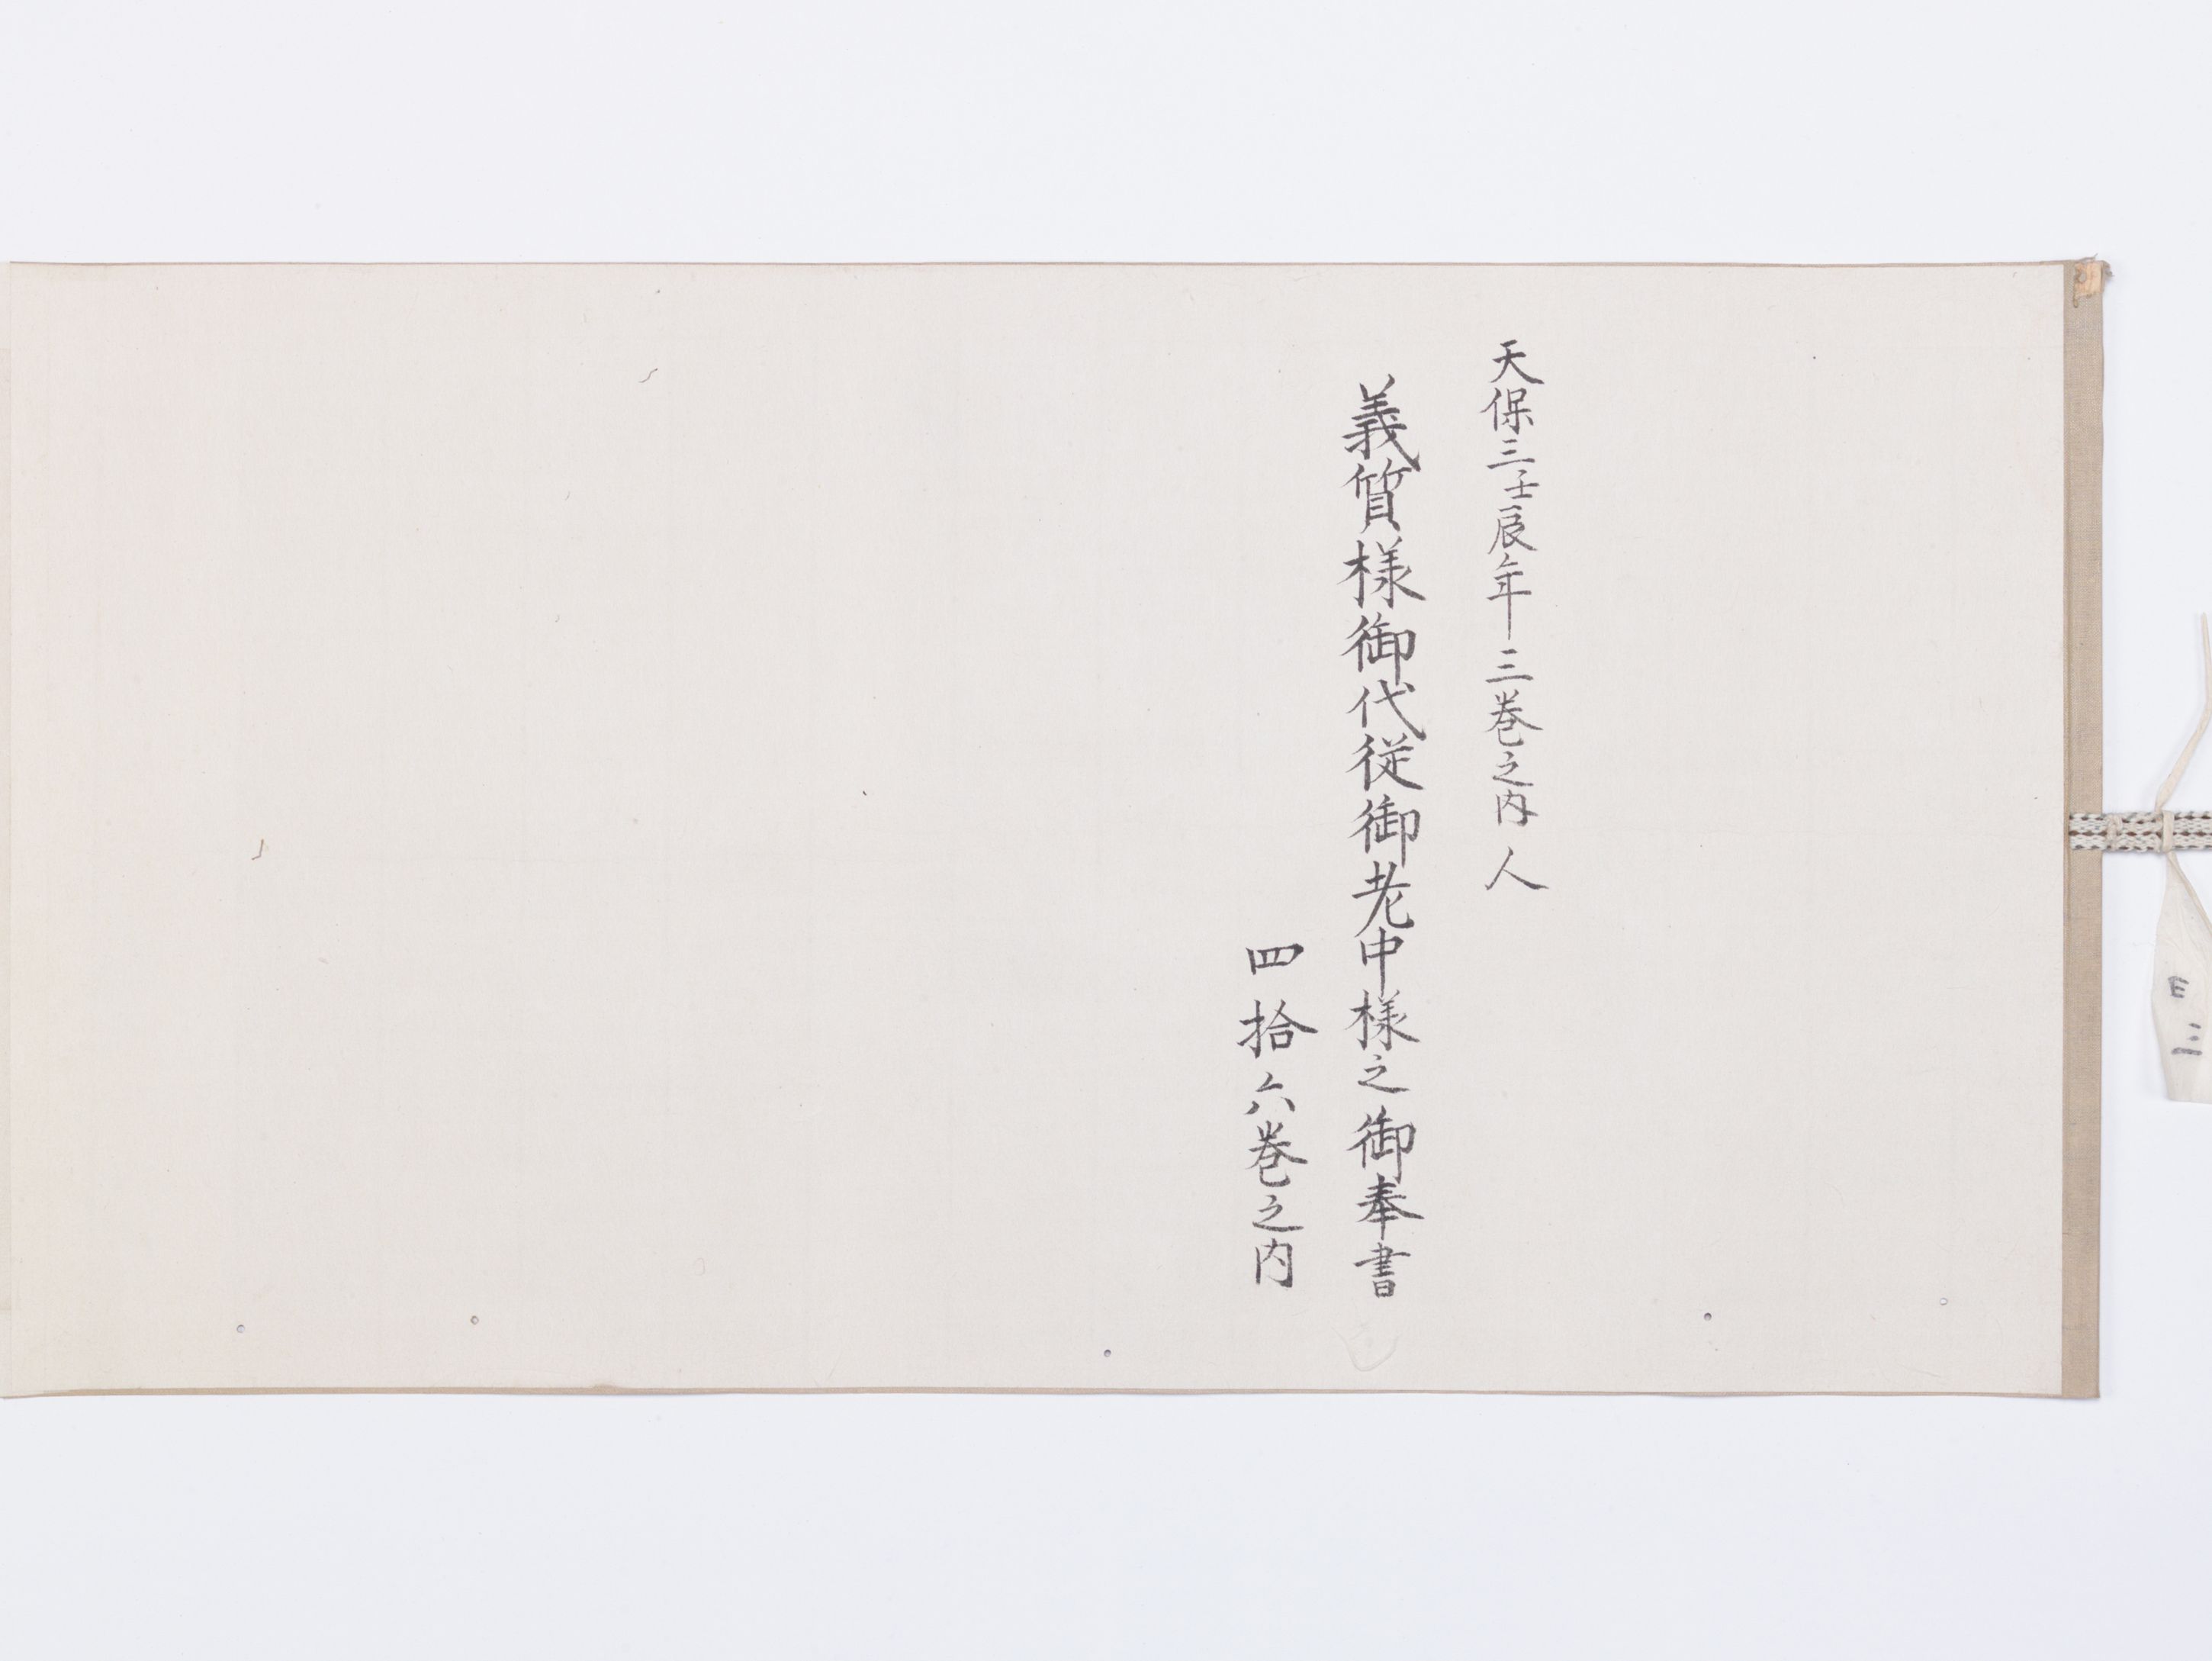 天保三壬辰年三巻之内 人
義質様御代従御老中様之御奉書
四拾六巻之内